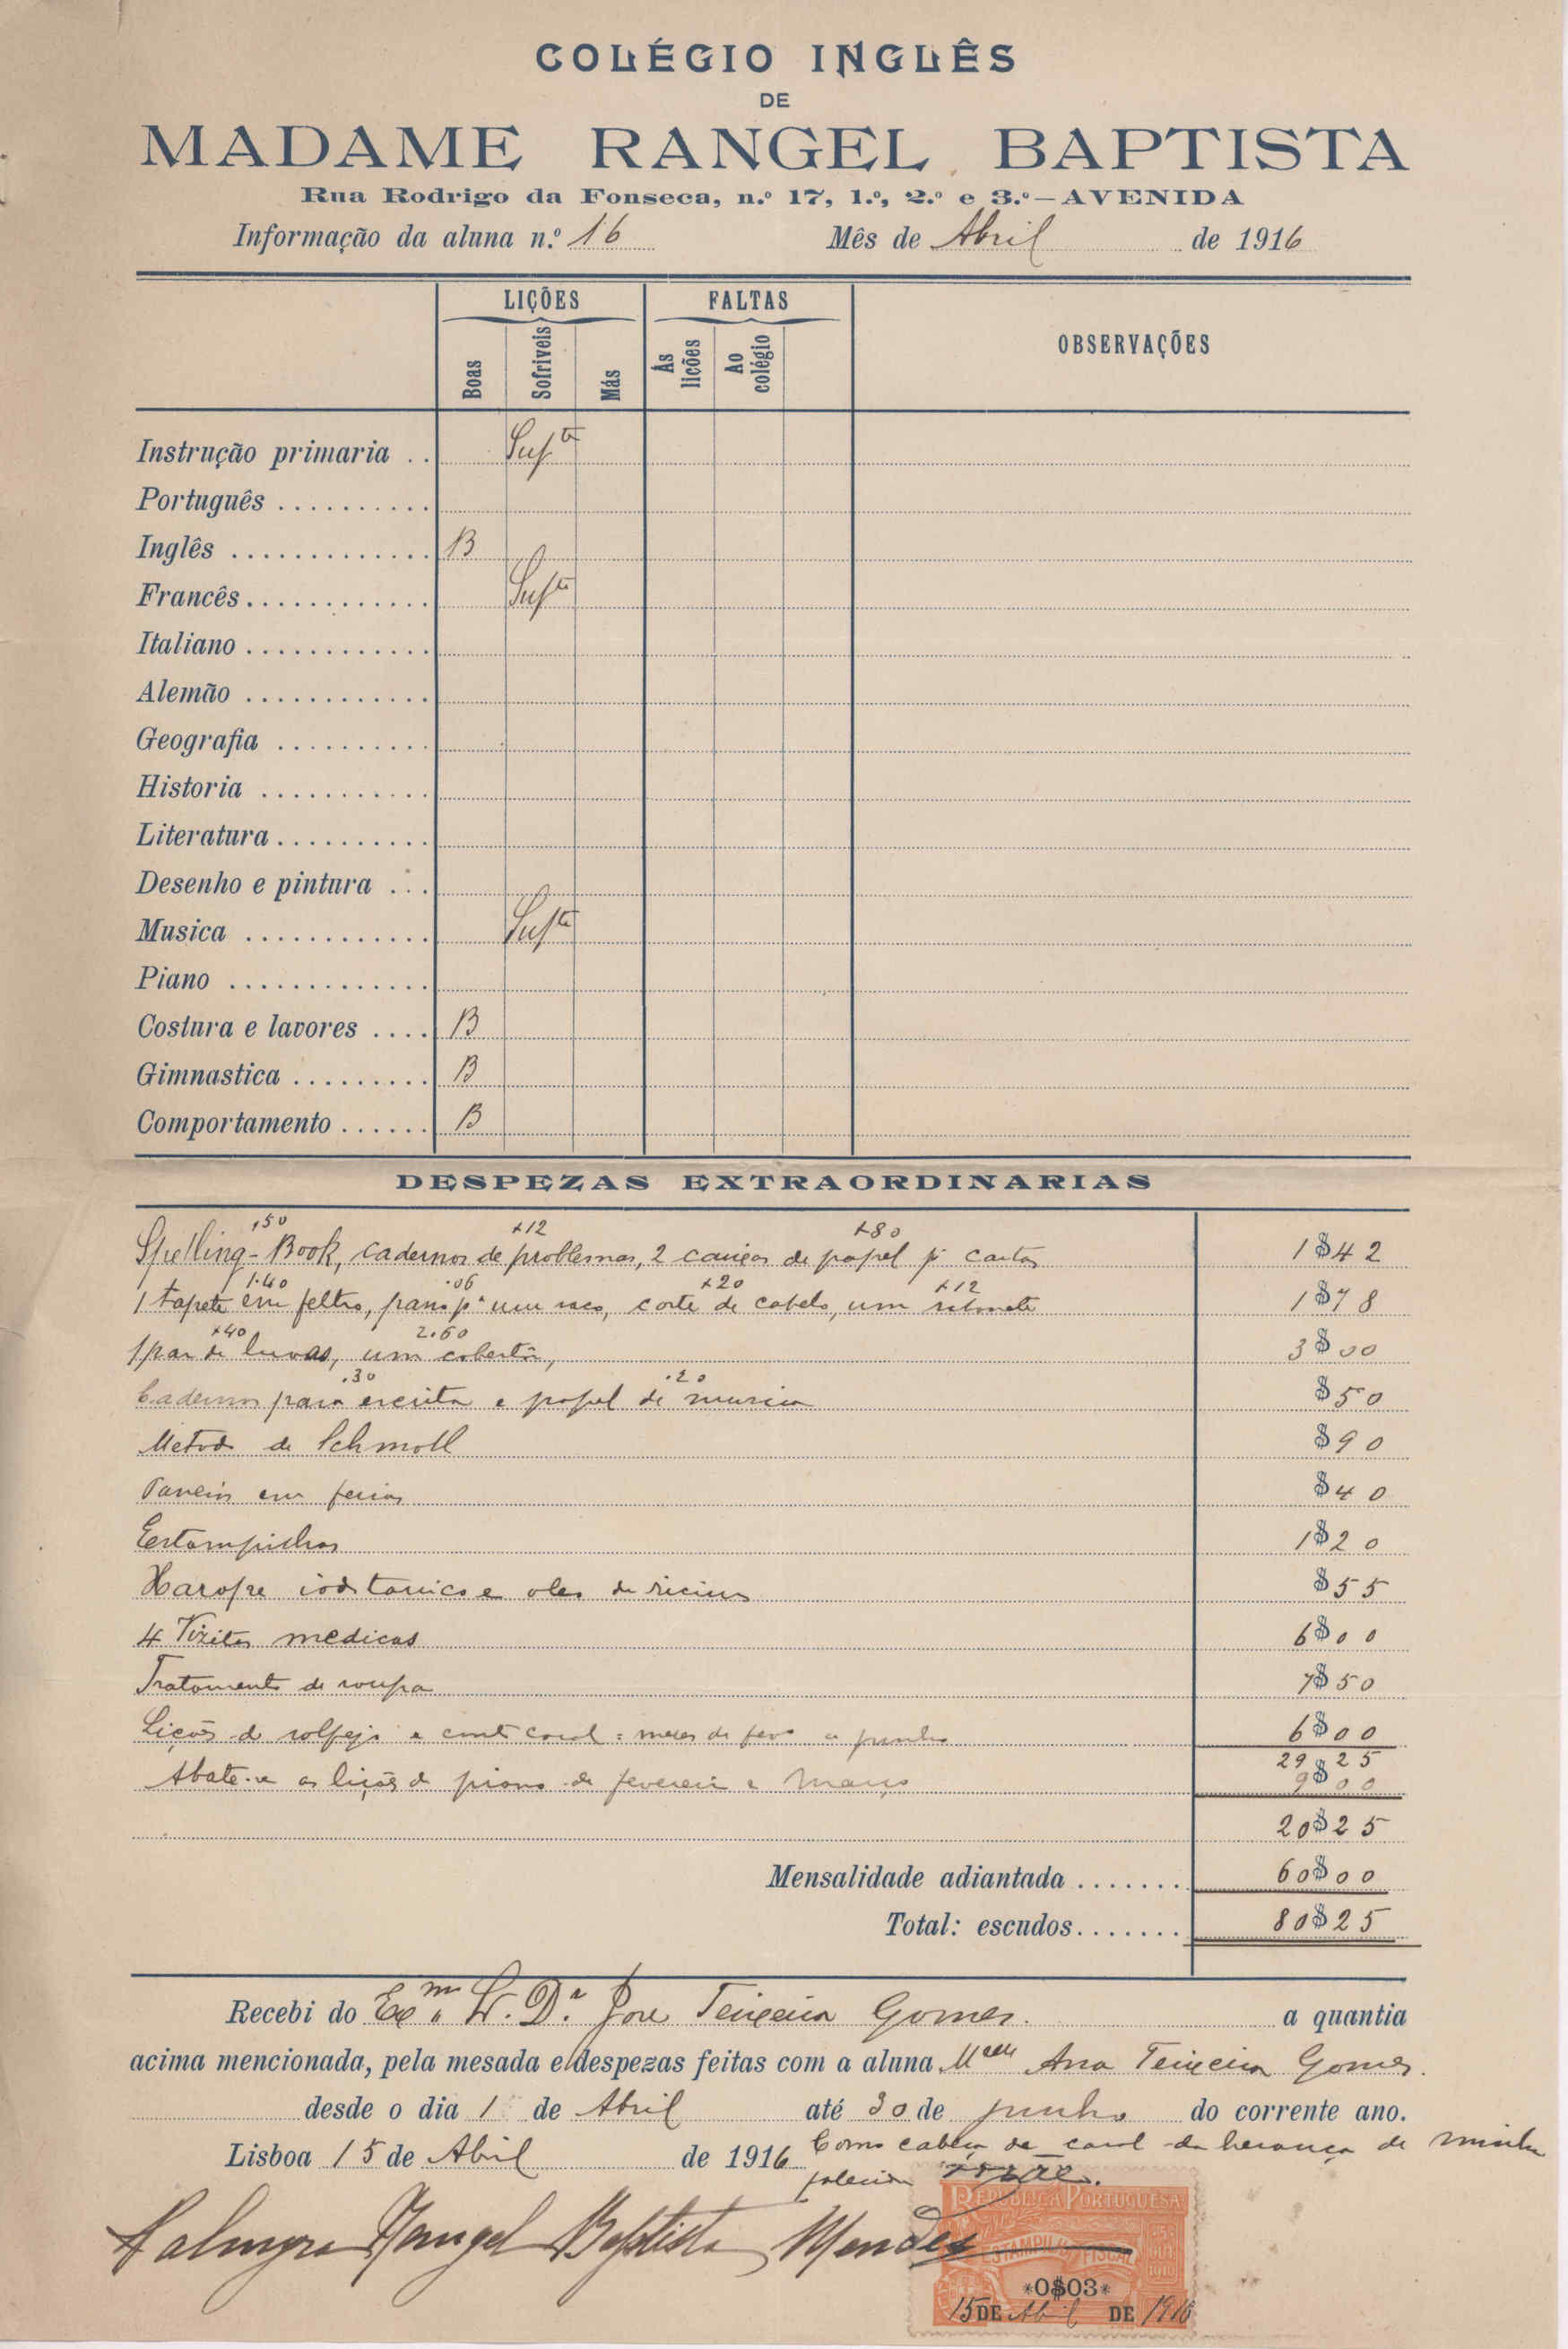 COLÉGIO INGLÊS
DE
MADAME RANGEL BAPTISTA
Rua Rodrigo da Fonseca, n.º 17, 1.º, 2.º e 3.º—AVENIDA
Informação da aluna n.º 16 Mês de Abril de 1916
LIÇÕES FALTAS OBSERVAÇÕES
Boas Sofriveis Más Às lições Ao colégio
Instrução primaria . . Suf.te
Português . . . . . . . . . .
Inglês . . . . . . . . . . . . . B
Francês . . . . . . . . . . . . Sufte
Italiano . . . . . . . . . . . .
Alemão . . . . . . . . . . . .
Geografia . . . . . . . . . .
Historia . . . . . . . . . . .
Literatura . . . . . . . . . .
Desenho e pintura . . .
Musica . . . . . . . . . . . . Sufte
Piano . . . . . . . . . . . . .
Costura e lavores . . . . B
Gimnastica . . . . . . . . . B
Comportamento . . . . . . B
DESPEZAS EXTRAORDINARIAS
,50 x12 x80
Spelling-Book, cadernos de problemas, 2 caixas de papel pª cartas 1$42
1.40 .06 x20 x12
1 tapete em feltro, pano pª um saco, corte de cabelo, um 1$78
x40 2.60
1 par de luvas, um cobertôr, 3$00
.30 .20
Cadernos para escrita e papel de musica $50
Metodo de Schmoll $90
em ferias $40
Estampilhas 1$20
Xarope iodotanico e oleo de ricino $55
4 Vizitas medicas 6$00
Tratamento de roupa 7$50
Lições de solfejo e canto coral: mezes de fevº a junho 6$00
29$25
Abate-se as lições de piano de fevereiro e Março 9$00
20$25
Mensalidade adiantada . . . . . . . 60$00
Total: escudos . . . . . . . 80$25
Recebi do Exmº Sr. D.r José Teixeira Gomes. a quantia
acima mencionada, pela mesada e despezas feitas com a aluna Melle Ana Teixeira Gomes.
desde o dia 1 de Abril até 30 de junho do corrente ano.
Lisboa 15 de Abril de 1916 Como cabeça de casal da herança de minha
falecida
Palmyra Rangel Baptista Mendes
REPUBLICA PORTUGUESA
ESTAMPILHA FISCAL
*0$03*
15 DE Abril DE 1916